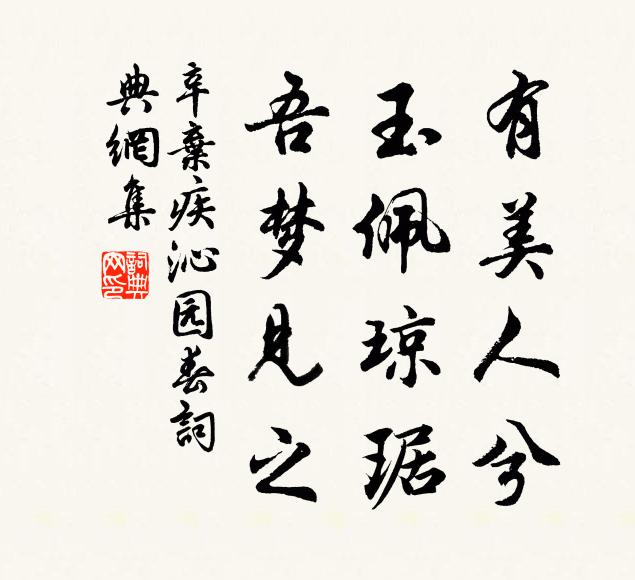 有美人兮
玉佩琼琚
吾梦见之
辛棄疾沁园春詞
典網集
詞典网印